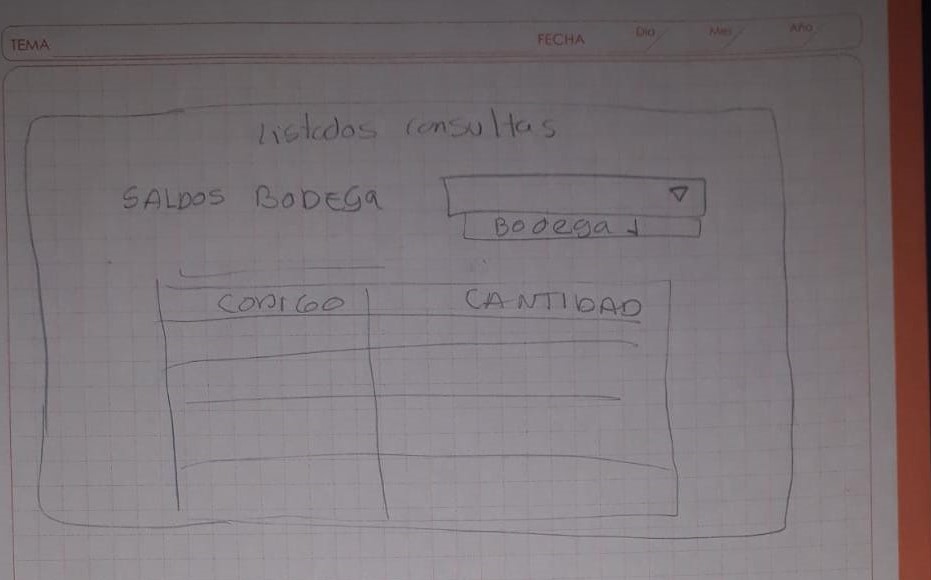 TEMA
FECHA Día Mes Año
Listados consultas
SALDOS BODEGA
Bodega 1
CODIGO CANTIDAD